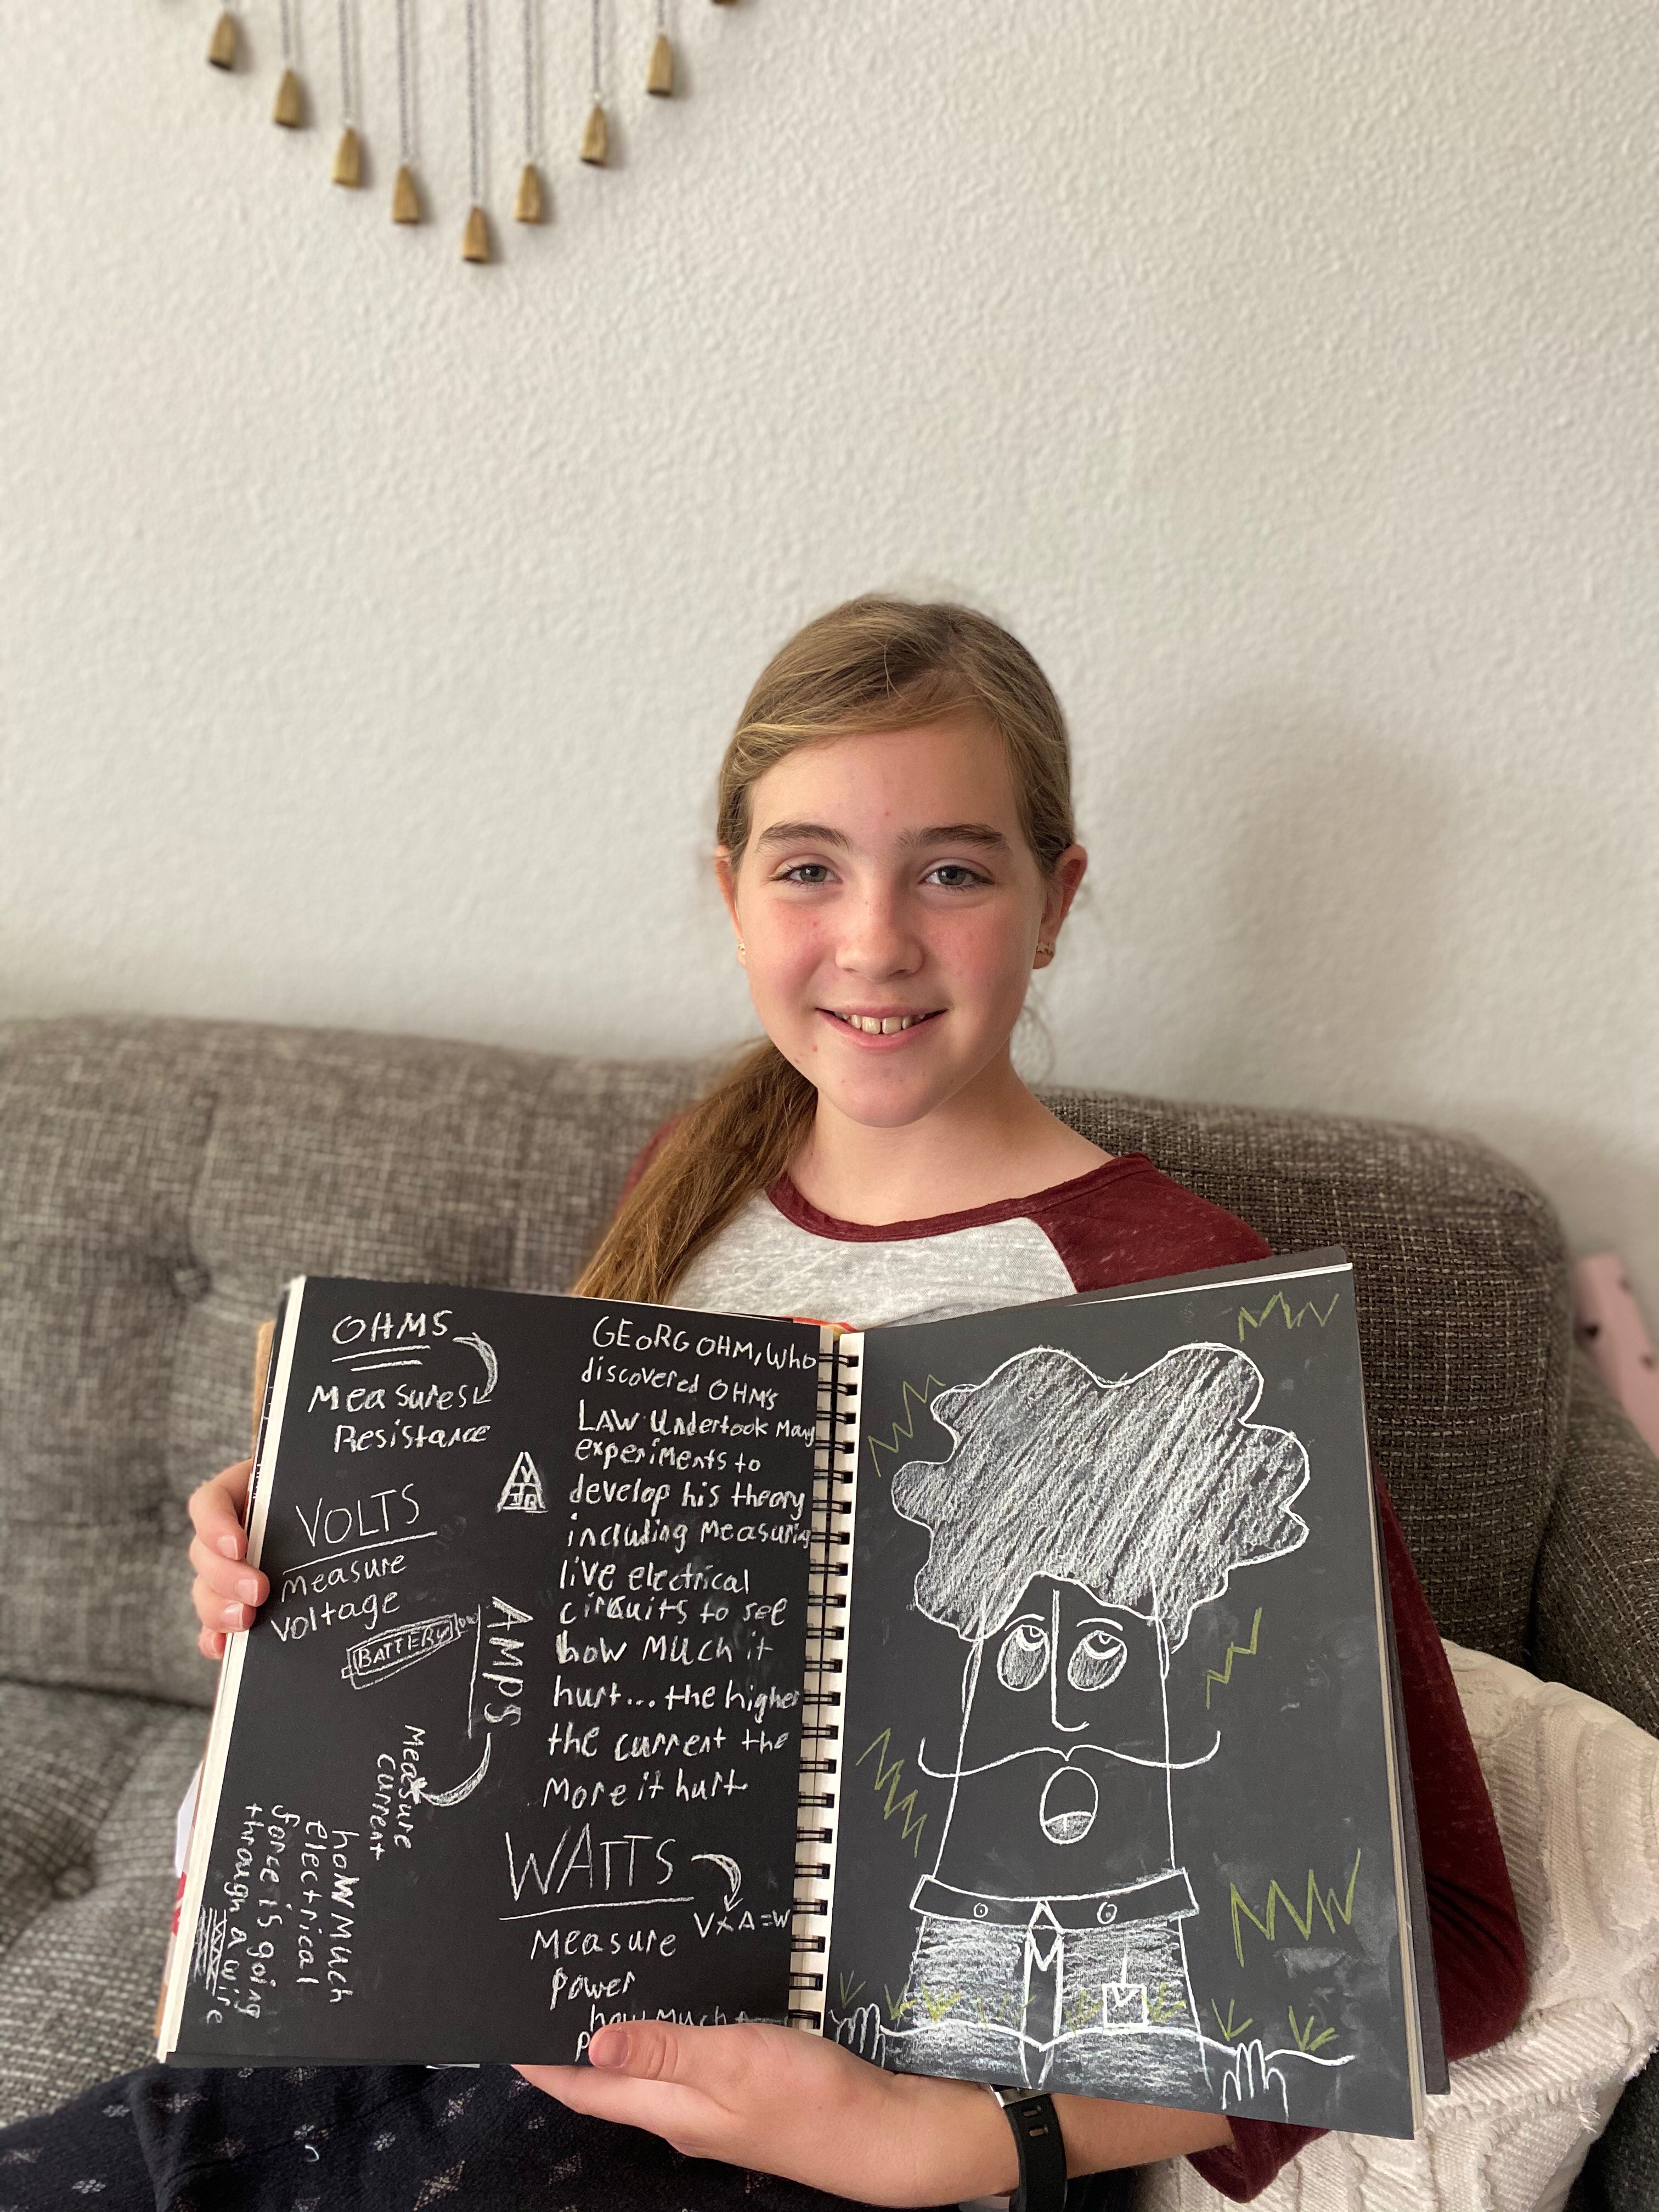 OHMS
Measures
Resistance
VOLTS
measure
voltage
BATTERY
AMPS
Measure
current
how Much
electrical
force is going
through a wire
GEORG OHM, Who
discovered OHM's
LAW Undertook Many
experiments to
develop his theory
including Measuring
live electrical
circuits to see
how MUCH it
hurt... the higher
the current the
More it hurt
WATTS
V x A = W
Measure
power
how much